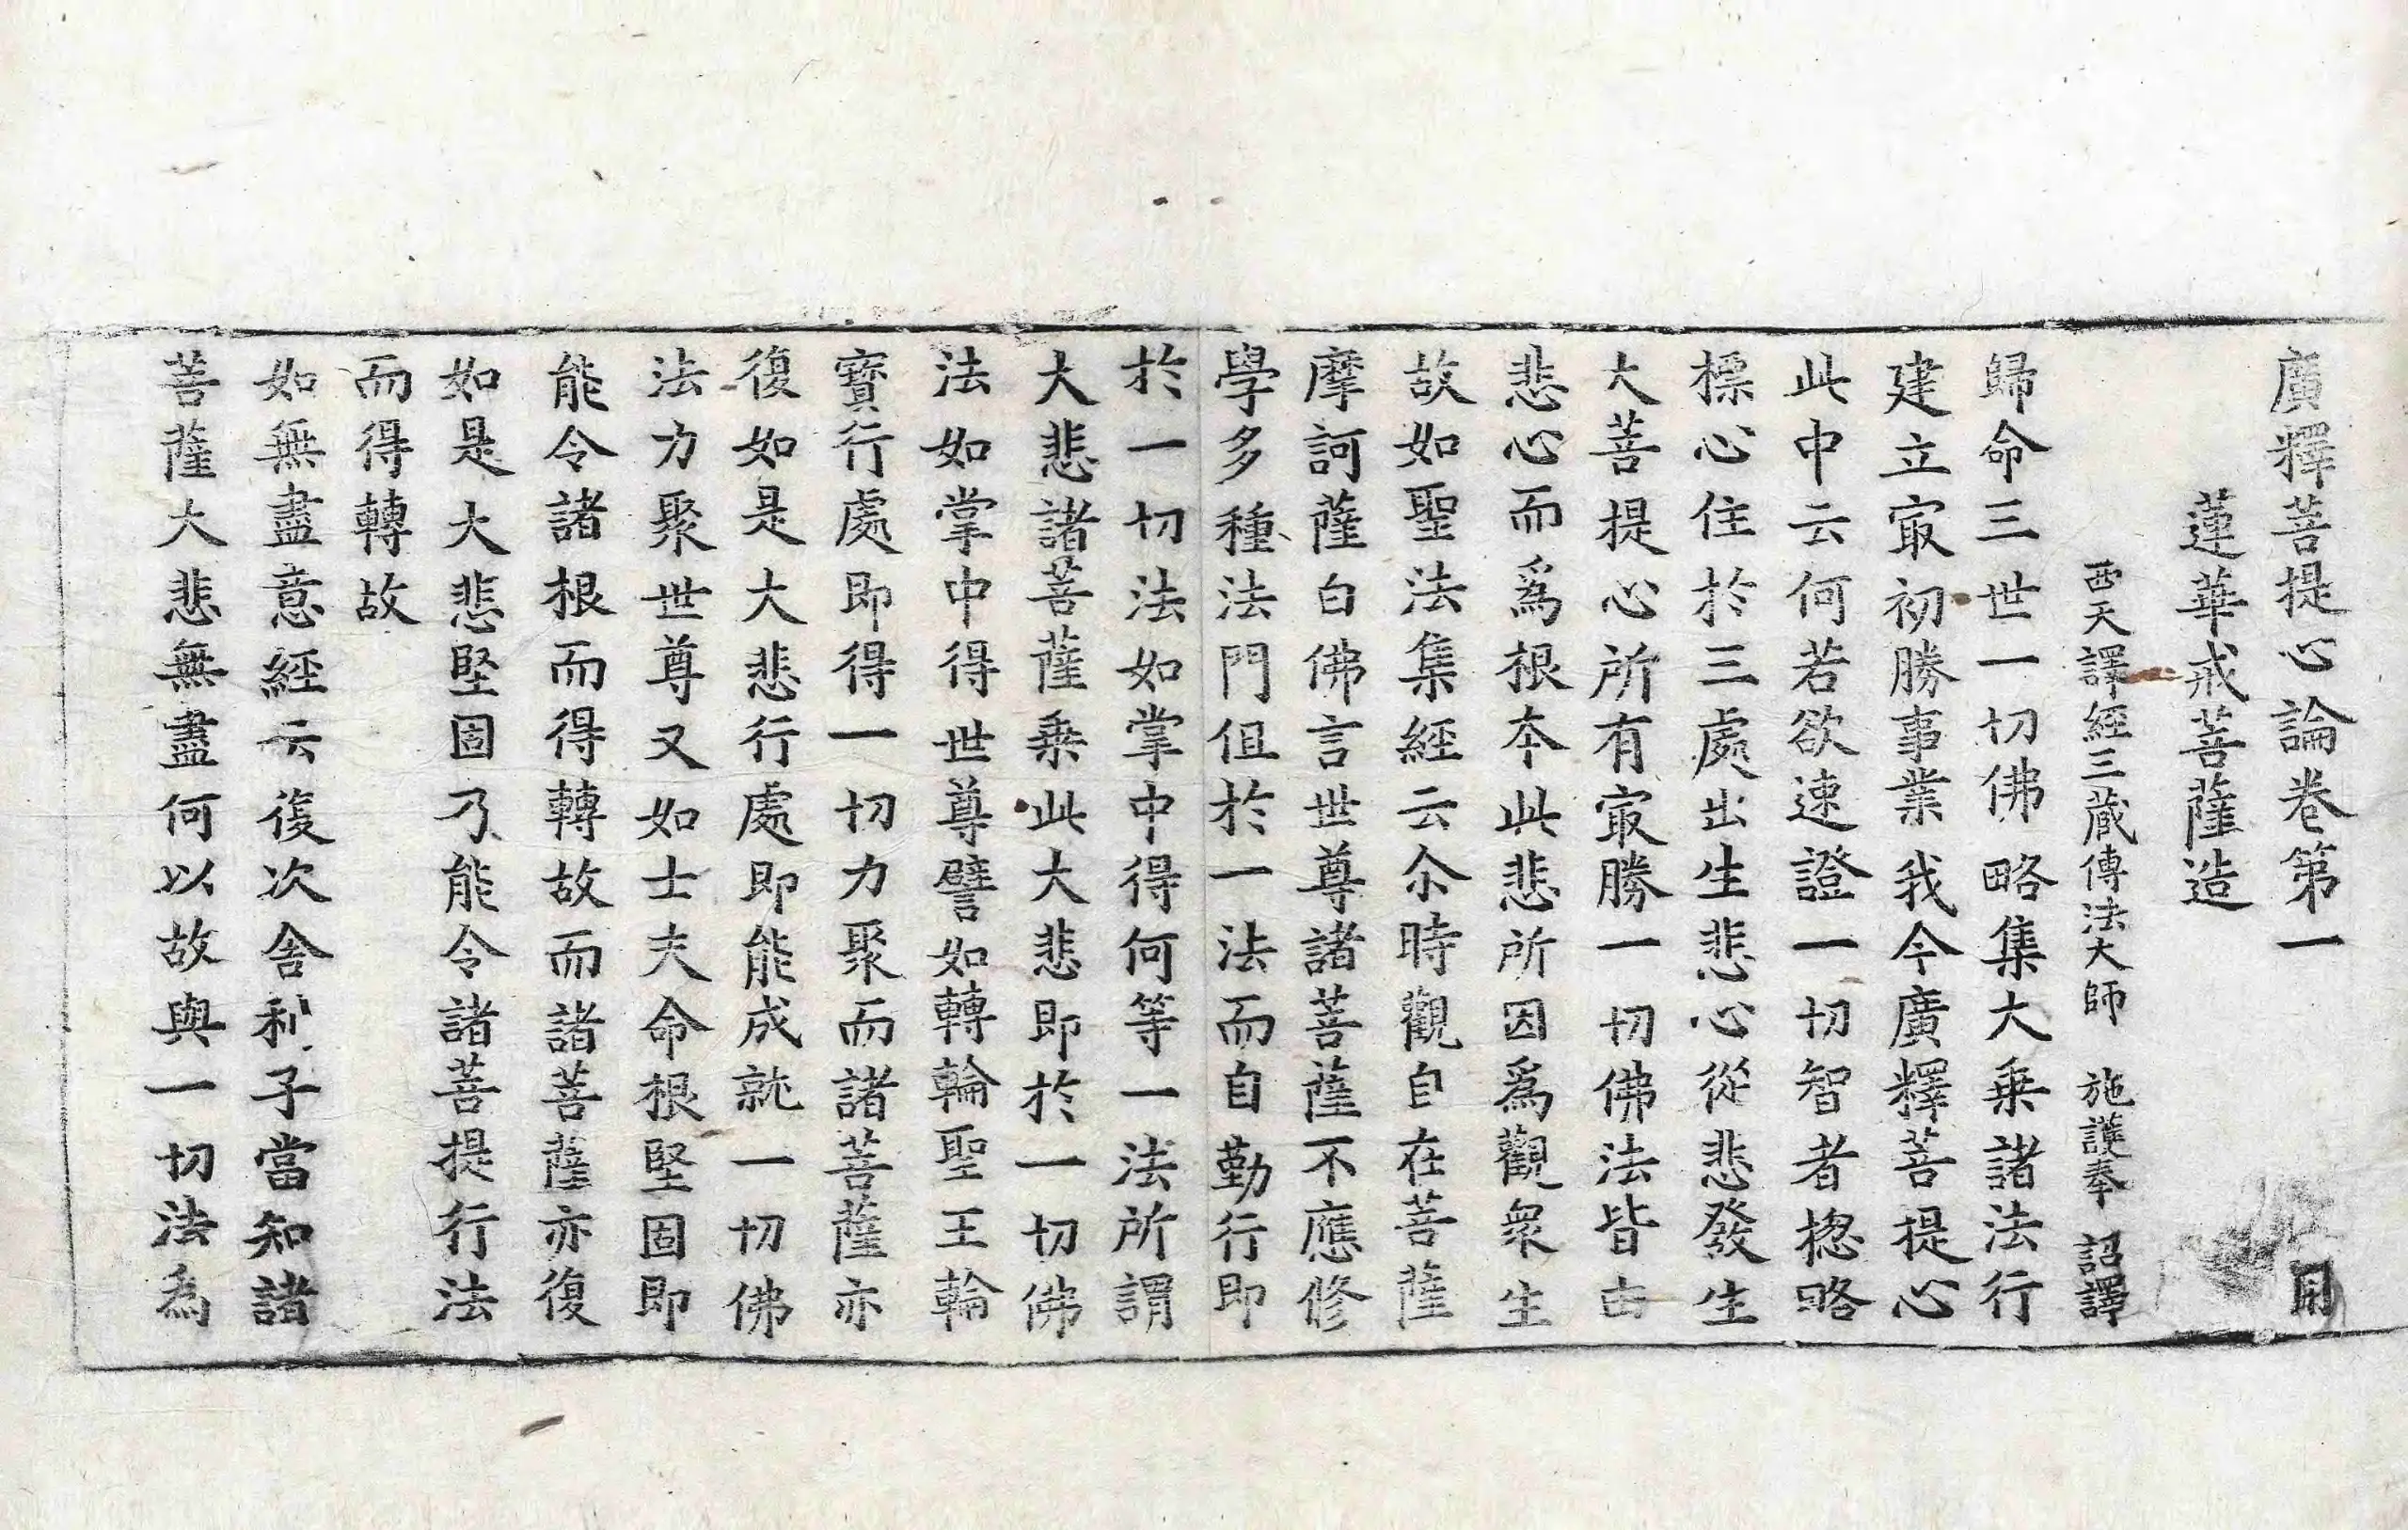 廣釋菩提心論卷第一
蓮華戒菩薩造
西天譯經三藏傳法大師 施護奉 詔譯
歸命三世一切佛略集大乗諸法行
建立㝡初勝事業我今廣釋菩提心
此中云何若欲速證一切智者揔略
標心住於三處出生悲心從悲發生
大菩提心所有㝡勝一切佛法皆由
悲心而爲根本此悲所因爲觀衆生
故如聖法集經云尒時觀自在菩薩
摩訶薩白佛言世尊諸菩薩不應修
學多種法門但於一法而自勤行即
於一切法如掌中得何等一法所謂
大悲諸菩薩乗此大悲即於一切佛
法如掌中得世尊譬如轉輪聖王輪
寶行處即得一切力聚而諸菩薩亦
復如是大悲行處即能成就一切佛
法力聚世尊又如士夫命根堅固即
能令諸根而得轉故而諸菩薩亦復
如是大悲堅固乃能令諸菩提行法
而得轉故
如無盡意經云復次舍利子當知諸
菩薩大悲無盡何以故與一切法為